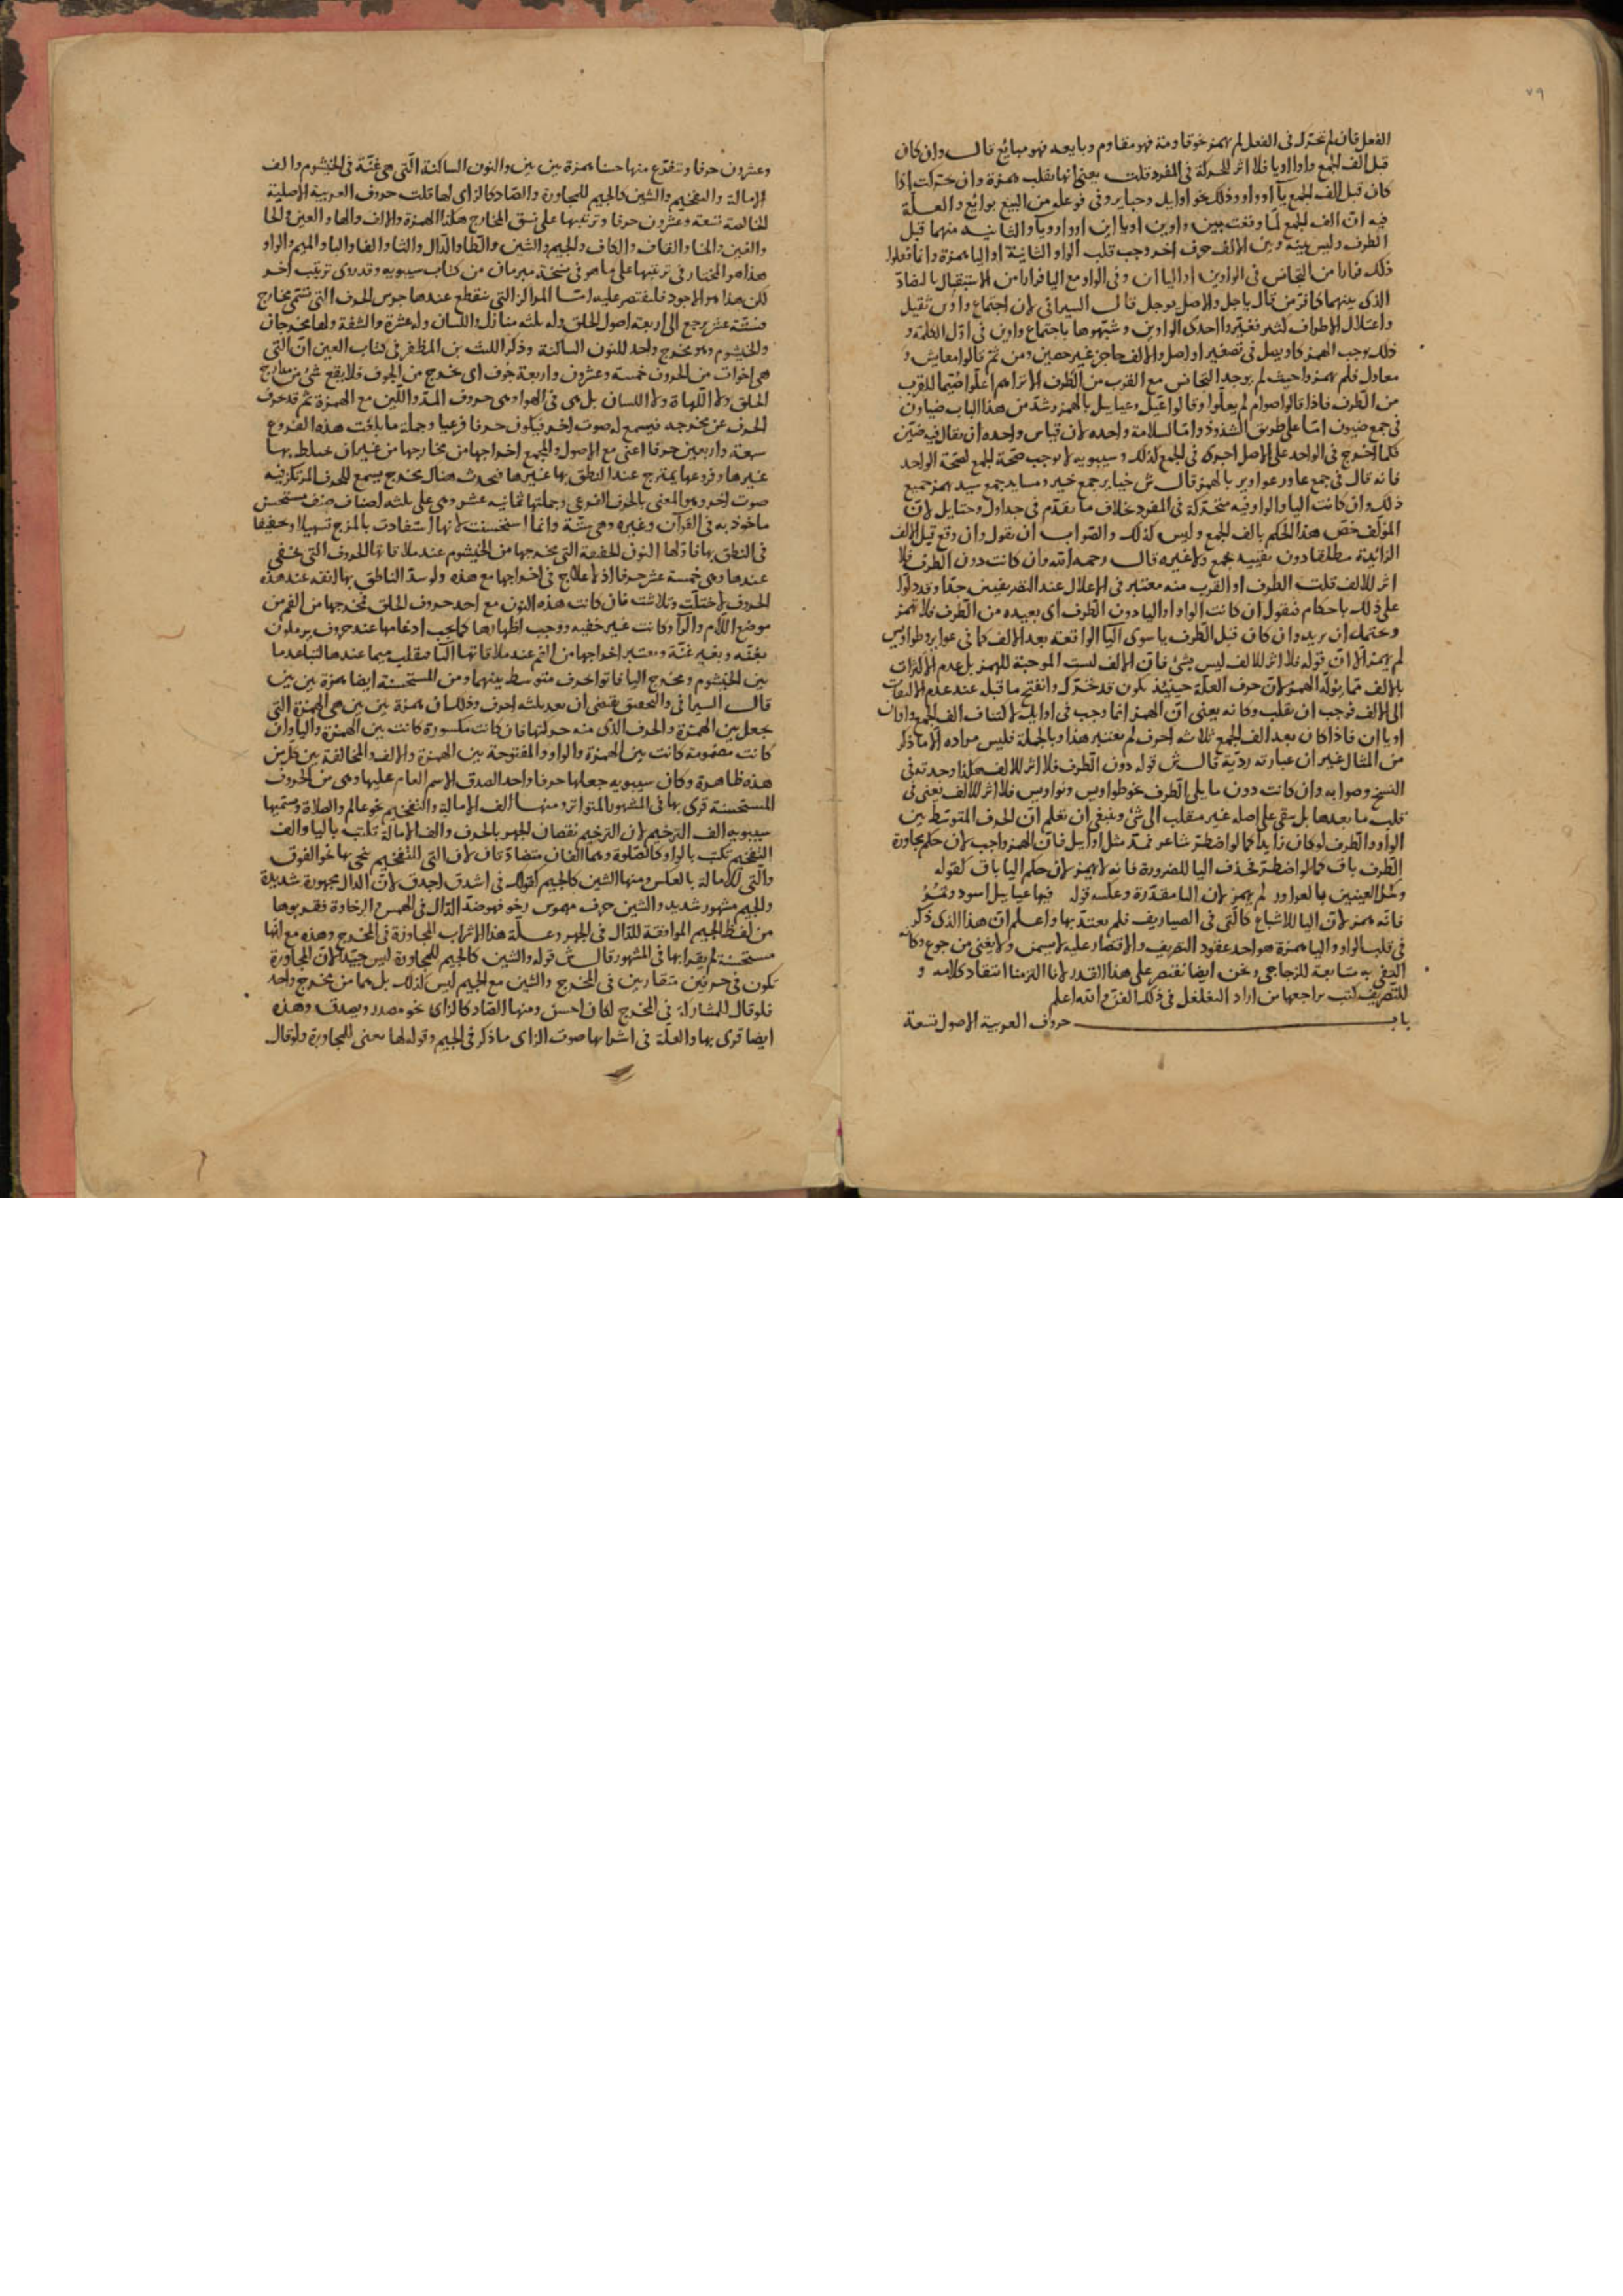 ٧٩
الفعل فان لم تحرك في الفعل لم يهمز نحو قاومته فهو مقاوم وبايعه فهو مبايع قال وان كان
قبل الف الجمع واو او يا فلا اثر للحركة في المفرد قلت يعني انها تقلب همزة وان تحركت اذا
كان قبل الف الجمع يآ او واو وذلك نحو اوايل وحياير وفي فوعله من البيع بوائع والعلة
فيه ان الف الجمع لما وقعت بين واوين او يااين او واو ويآ والثانيه منهما قبل
الطرف وليس بينه وبين الالف حرف اخر وجب قلب الواو الثانية او اليا همزة وانما فعلوا
ذلك فرارا من التجانس في الواوين او اليااين وفي الواو مع اليا فرارا من الاستثقال بالتضاد
الذي بينهما كما فر من قال ياجل والاصل يوجل قال السيرافي لان اجتماع واوين ثقيل
واعتلال الاطراف كثير فغيروا احدى الواوين وشبهوها باجتماع واوين في اول الكلمة و
ذلك يوجب الهمز كاويصل في تصغير اواصل والالف حاجز غير حصين ومن ثم قالوا معايش و
معاول فلم يهمزوا حيث لم يوجد التجانس مع القرب من الطرف الا تراهم اعلوا صيما للقرب
من الطرف فاذا قالوا صوام لم يعلوا وقالوا عيل وعيايل بالهمز وشذ من هذا الباب ضياون
في جمع ضيون اما على طريق الشذوذ واما لسلامة واحده لان قياس واحده ان يقال فيه ضين
فكما اخرج في الواحد على الاصل اجروه في الجمع كذلك وسيبويه لا يوجب صحة الجمع لصحة الواحد
فانه قال في جمع عاور عواوير بالهمز قال ش خياير جمع خير وسيايد جمع سيد يهمز جميع
ذلك وان كانت اليا والواو فيه متحركة في المفرد خلاف ما تقدم في جداول وحثايل لان
المؤلف خص هذا الحكم بالف الجمع وليس كذلك والصواب ان يقول وان وقع قبل الالف
الزائدة مطلقا دون تقييد بجمع ولا غيره قال رحمه الله وان كانت دون الطرف فلا
اثر للالف قلت الطرف او القرب منه معتبر في الاعلال عند التصريفيين جدا وقد دلوا
على ذلك باحكام فنقول ان كانت الواو او اليا دون الطرف اي بعيده من الطرف فلا تهمز
ويحتمل ان يريد وان كان قبل الطرف يا سوى اليا الواقعة بعد الالف كما في عواير وطواويس
لم يهمز الا ان قوله فلا اثر للالف ليس بشئ فان الالف ليست الموجبة للهمز بل عدم الاكتراث
بالالف مما يولد الهمز لان حرف العلة حينئذ يكون قد تحرك وانفتح ما قبله عند عدم الالتفات
الى الالف فوجب ان يقلب وكانه يعني ان الهمز انما وجب في اوايل لاكتناف الف الجمع واوان
او ياان فاذا كان بعد الف الجمع ثلاثه احرف لم يعتبر هذا وبالجملة فليس مراده الا ما ذكر
من المثال غير ان عبارته ردية قال ش قوله دون الطرف فلا اثر للالف هكذا وجدته في
النسخ وصوابه وان كانت دون ما يلي الطرف نحو طواويس ونواويس فلا اثر للالف يعني في
قلب ما بعدها بل يبقى على اصله غير منقلب الى شئ وينبغي ان تعلم ان الحرف المتوسط بين
الواو والطرف لو كان زايدا كما لو اضطر شاعر فمد مثل اوايل فان الهمز واجب لان حكم مجاورة
الطرف باق كما لو اضطر بحذف اليا للضرورة فانه لا يهمز لان حكم اليا باق كقوله
وكحل العينين بالعواور لم يهمز لان اليا مقدرة وعكسه قوله فيها عيايل اسود ونمر
فانه همز لان اليا للاشباع كالتي في الصياريف فلم يعتد بها واعلم ان هذا الذي ذكر
في قلب الواو واليا همزة هو احد عقود التصريف والاقتصار عليه لا يسمن ولا يغني من جوع وكانه
اكتفي به متابعة للزجاجي ونحن ايضا نقتصر على هذا القدر لانا التزمنا انتقاد كلامه و
للتصريف كتب يراجعها من اراد التغلغل في ذلك الفن والله اعلم
باب حروف العربية الاصول تسعة
وعشرون حرفا وتتفرع منها حسنا همزة بين بين والنون الساكنة التي هي غنة في الخيشوم والف
الامالة والتفخيم والشين كالجيم للمجاورة والصاد كالزاي لها قلت حروف العربية الاصلية
الخالصة تسعة وعشرون حرفا وترتيبها على نسق المخارج هكذا الهمزة والالف والها والعين والحا
والغين والخا والقاف والكاف والجيم والشين والطا والدال والتا والفا والبا والميم والواو
هذا هو المختار في ترتيبها على ما هو في نسخة مبرمان من كتاب سيبويه وقد روى ترتيب اخر
لكن هذا هو الاجود فليقتصر عليه اما المراكز التي ينقطع عندها جرس الحرف التي تسمى مخارج
فستة عشر يرجع الى اربعة اصول الحلق وله ثلثه منازل واللسان وله عشرة والشفة ولها مخرجان
والخيشوم وهو مخرج واحد للنون الساكنة وذكر الليث بن المظفر في كتاب العين ان التي
هي اخوات من الحروف خمسة وعشرون واربعة جوف اي تخرج من الجوف فلا يقع شئ من مدارج
الحلق ولا اللهاة ولا اللسان بل هي في الهوا وهي حروف المد واللين مع الهمزة ثم قد حرف
الحرف عن مخرجه فيسمع له صوت اخر فيكون حرفا فرعيا وجملة ما بلغت هذه الفروع
سبعة واربعين حرفا اعني مع الاصول والجميع اخراجها من مخارجها من غير ان تختلط بها
غيرها وفروعها يمتزج عند النطق بها غيرها فيحدث هناك مخرج يسمع للحرف المرتكز فيه
صوت اخر وهو المعنى بالحرف الفرعي وجملتها ثمانيه عشر وهي على ثلثه اصناف صنف مستحسن
ماخوذ به في القرآن وغيره وهي ستة وانما استحسنت لانها استفادت بالمزج تسهيلا وتخفيفا
في النطق بها فاولها النون الخفيفة التي مخرجها من الخيشوم عند ملاقاتها الحروف التي تخفى
عندها وهي خمسة عشر حرفا اذ لا علاج في اخراجها مع هذه ولو سد الناطق بها انفه عند هذه
الحروف لاختلت وتلاشت فان كانت هذه النون مع احد حروف الحلق مخرجها من الفم من
موضع اللام والرا وكانت غير خفيه ووجب اظهارها كما يجب ادغامها عند حروف يرملون
بغنه وبغير غنة ويعتبر اخراجها من الفم عند ملاقاتها البا فتقلب ميما عندها لتباعد ما
بين الخيشوم ومخرج البا فاتوا بحرف متوسط بينهما ومن المستحسنة ايضا همزة بين بين
قال السيرافي والتحقيق يقتضي ان تعد بثلثه احرف وذلك ان همزة بين بين هي الهمزة التي
تجعل بين الهمزة والحرف الذي منه حركتها فان كانت مكسورة كانت بين الهمزة واليا وان
كانت مضمومة كانت بين الهمزة والواو والمفتوحة بين الهمزة والالف والمخالفة بين
هذه ظاهرة وكان سيبويه جعلها حرفا واحدا لصدق الاسم العام عليها وهي من الحروف
المستحسنة قرئ بها في المشهور المتواتر ومنها الف الامالة والتفخيم نحو عالم والصلاة ويسميها
سيبويه الف الترخيم لان الترخيم نقصان الجهر بالحرف والف الامالة تكتب باليا والف
التفخيم تكتب بالواو كالصلوة وهما الفان متضادتان لان التي للتفخيم ينحى بها نحو الفوق
والتي للامالة بالعكس ومنها الشين كالجيم كقولك في اشدق اجدق لان الدال مجهورة شديدة
والجيم مشهور شديد والشين حرف مهموس رخو فهو ضد الدال في الهمس والرخاوة فقربوها
من لفظ الجيم الموافقة للدال في الجهر وعلة هذا الاشراب المجاوزة في المخرج وهذه مع انها
مستحسنة لم يقرا بها في المشهور قال ش قوله والشين كالجيم للمجاورة ليس جيدا لان المجاورة
تكون في حرفين متقاربين في المخرج والشين مع الجيم ليس كذلك بل هما من مخرج واحد
فلو قال للمشاركة في المخرج لكان احسن ومنها الصاد كالزاي نحو مصدر ويصدق وهذه
ايضا قرئ بها والعلة في اشرابها صوت الزاي ما ذكر في الجيم وقوله لها يعني للمجاورة ولو قال